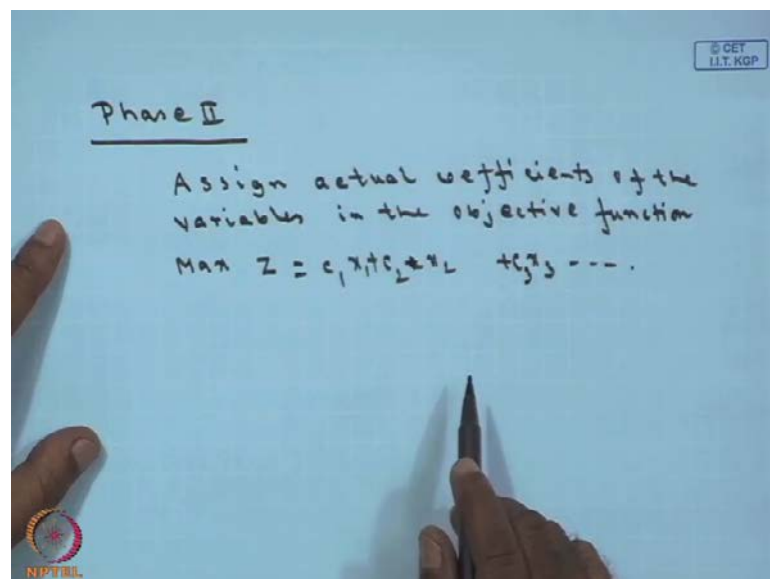 © CET
I.I.T. KGP
Phase II
Assign actual coefficients of the
variables in the objective function
Max Z = c₁x₁+c₂x₂ +c₃x₃ ----.
NPTEL